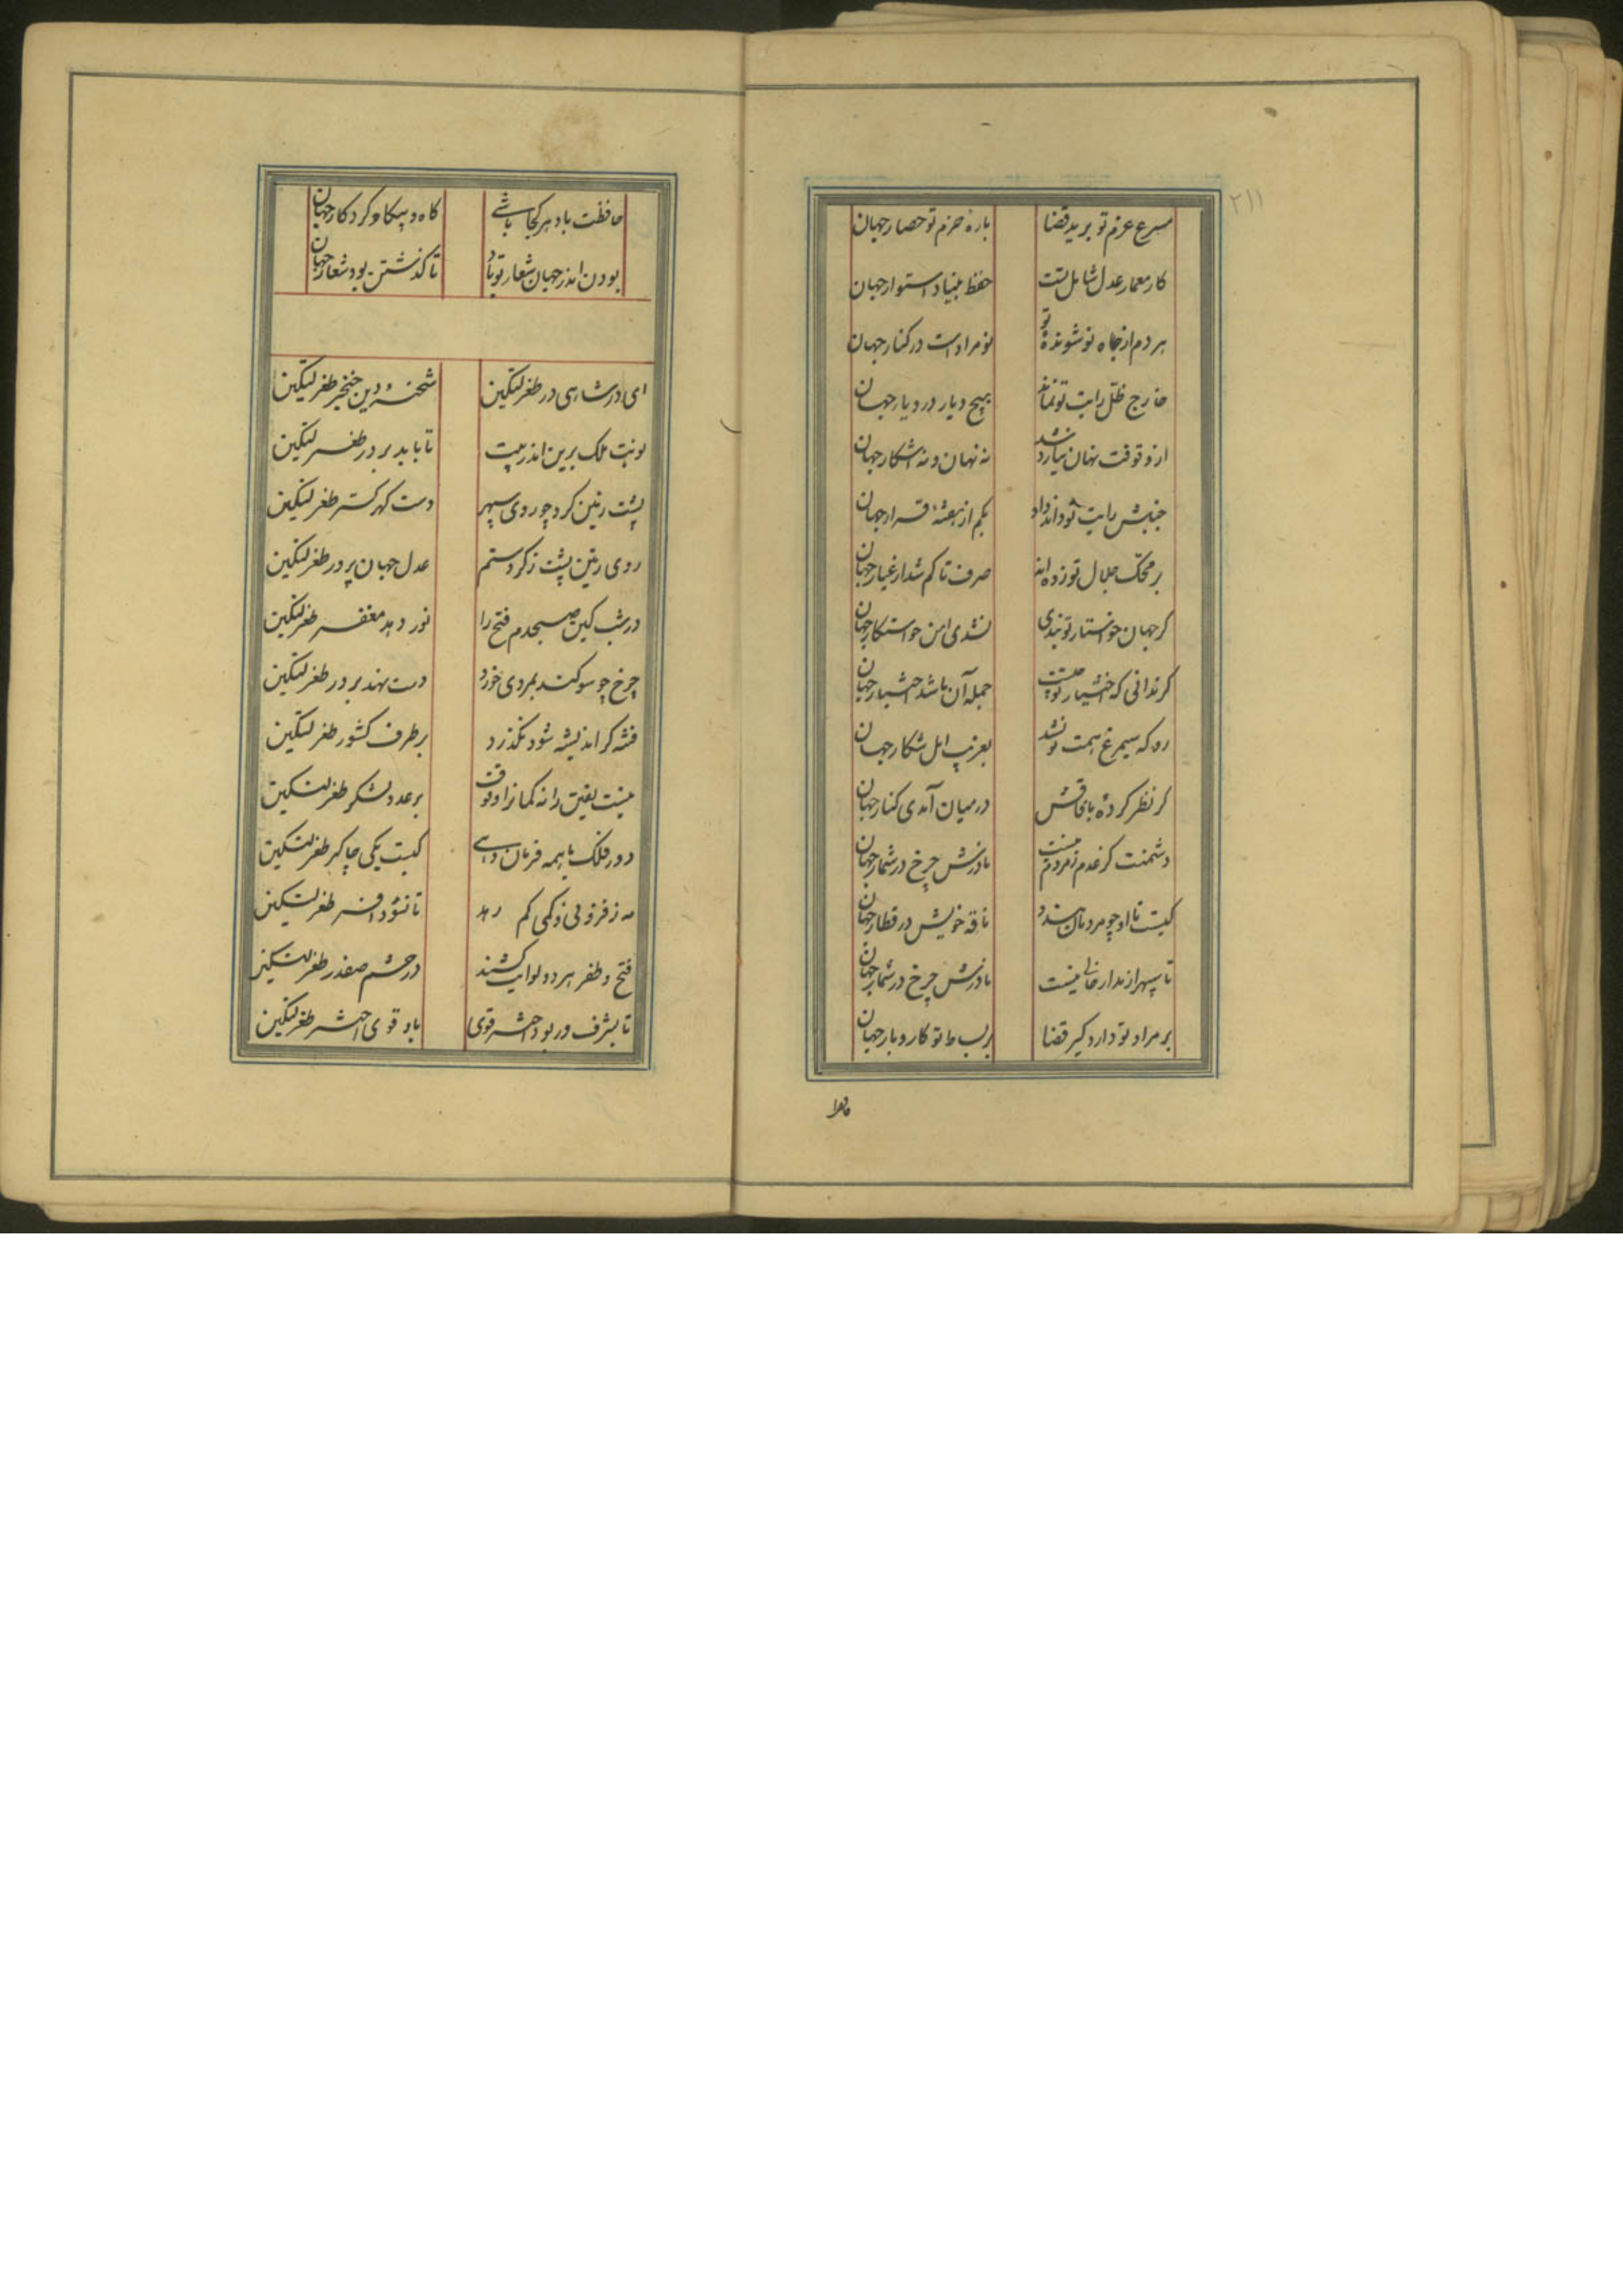 ۲۱۱
مسرع عزم تو برید قضا باره حزم تو حصار جهان
کار معمار عدل شامل تست حفظ بنیاد استوار جهان
هر دم از جاه نو شونده تو نو مرادست در کنار جهان
خارج ظل رایت تو نماند هیچ دیار در دیار جهان
از وقوفت نهان نیارد شد نه نهان و نه آشکار جهان
جنبش رایت تو داند داد بکم از هفته قرار جهان
بر محک جلال تو زده‌اند صرف تا کم شد از عیار جهان
کر جهان خواستار تو نبدی نشدی امن خواستکار جهان
کر ندانی که اختیار تو چیست جمله آن باشد اختیار جهان
رو که سیمرغ همت تو نشد بفریب امل شکار جهان
کر نظر کرده باقش در میان آمدی کنار جهان
دشمنت کر عدم ز مردم نیست ناورندش چرخ در شمار جهان
کیست تا او چو مردمان بندد ناقه خویش در قطار جهان
تا سپهر از مدار خالی نیست ناورندش چرخ در شمار جهان
بر مراد تو دارد کیر قضا بر بساط تو کار و بار جهان
حافظت باد هر کجا باشی کاه و بیکاه کردکار جهان
بودن اندر جهان شعار تو باد تا کذشتن بود شعار جهان
ای در شاهی در طغرلتکین شحنه دین خنجر طغرلتکین
نوبت ملک برین اندر بیت تا بابد بر در طغرلتکین
پشت زمین کرد چو روی سپهر دست کهر کستر طغرلتکین
روی زمین پشت ز کرد ستم عدل جهان پرور طغرلتکین
در شب کین صبحدم فتح را نور دهد مغفر طغرلتکین
چرخ چو سوکند بمردی خورد دست نهد بر در طغرلتکین
فتنه کر اندیشه شود نکذرد بر طرف کشور طغرلتکین
نیست یقین را نه کمان را وقوف بر عدد لشکر طغرلتکین
دور فلک با همه فرمان دهی کیست یکی چاکر طغرلتکین
مه ز فزونی و کمی کم رهد تا نشود افسر طغرلتکین
فتح و ظفر هر دو لوا میکشند در حشم صفدر طغرلتکین
تا بشرف در بود اختر قوی باد قوی اختر طغرلتکین